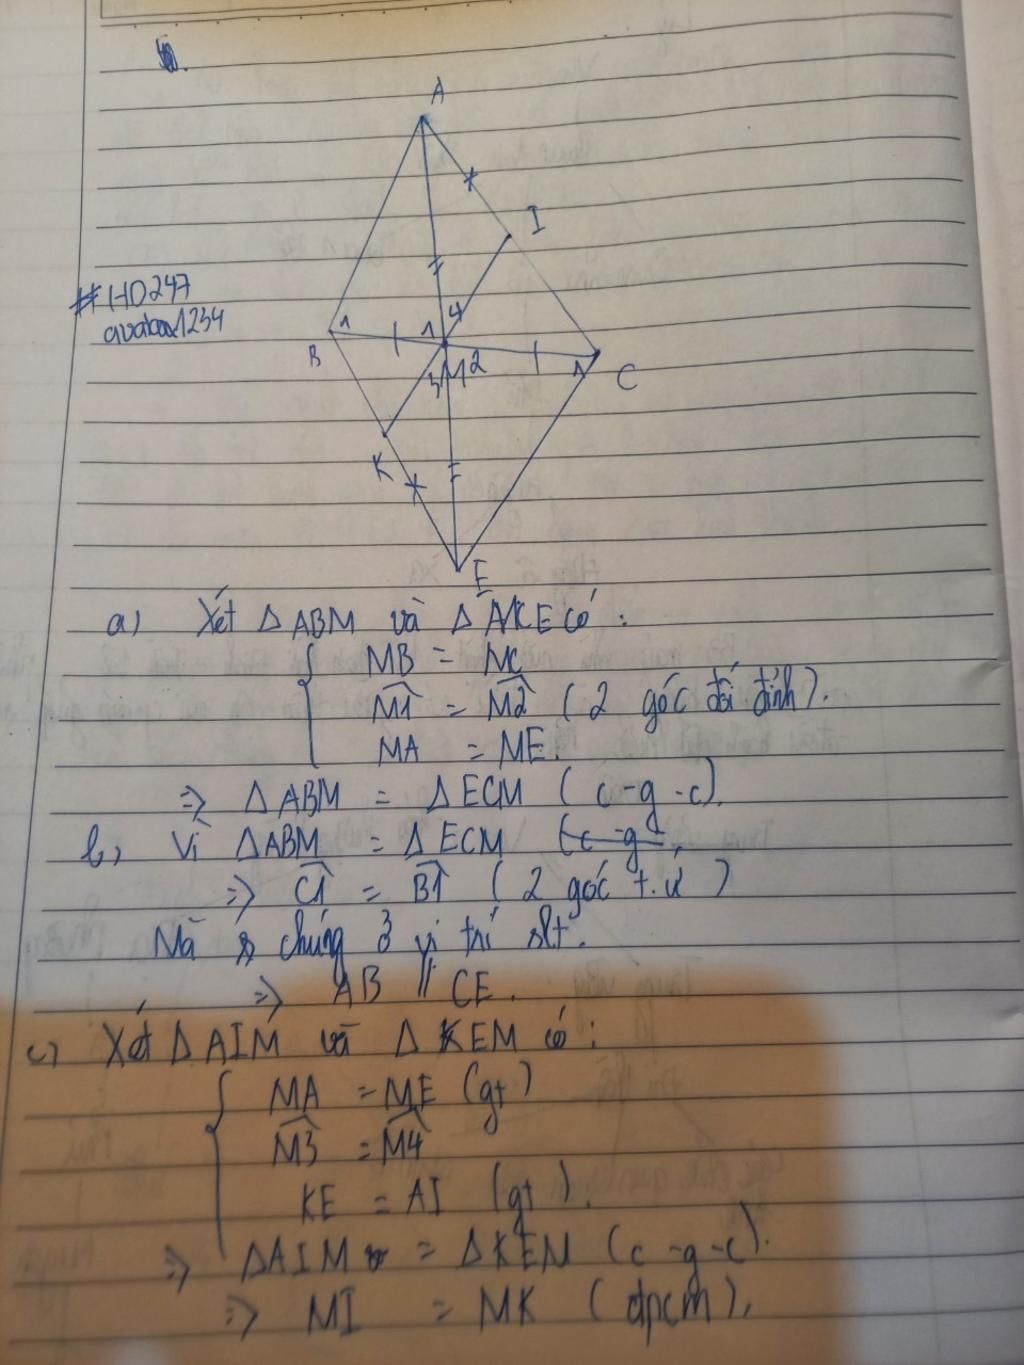 A
I
#HD247
1234
B
1
1
4
3
M
2
1
C
K
E
a) Xét Δ ABM và Δ KE có:
MB = MC
M1 = M2 (2 góc đối đỉnh).
MA = ME.
=> Δ ABM = Δ ECM (c-g-c).
b) Vì ΔABM = Δ ECM (c-g
=> C1 = B1 (2 góc t.ứ)
Mà chúng ở vị trí slt.
=> AB // CE.
c) Xét Δ AIM và Δ KEM có:
MA = ME (gt)
M3 = M4
KE = AI (gt).
=> ΔAIM = ΔKEM (c-g-c).
=> MI = MK (đpcm).